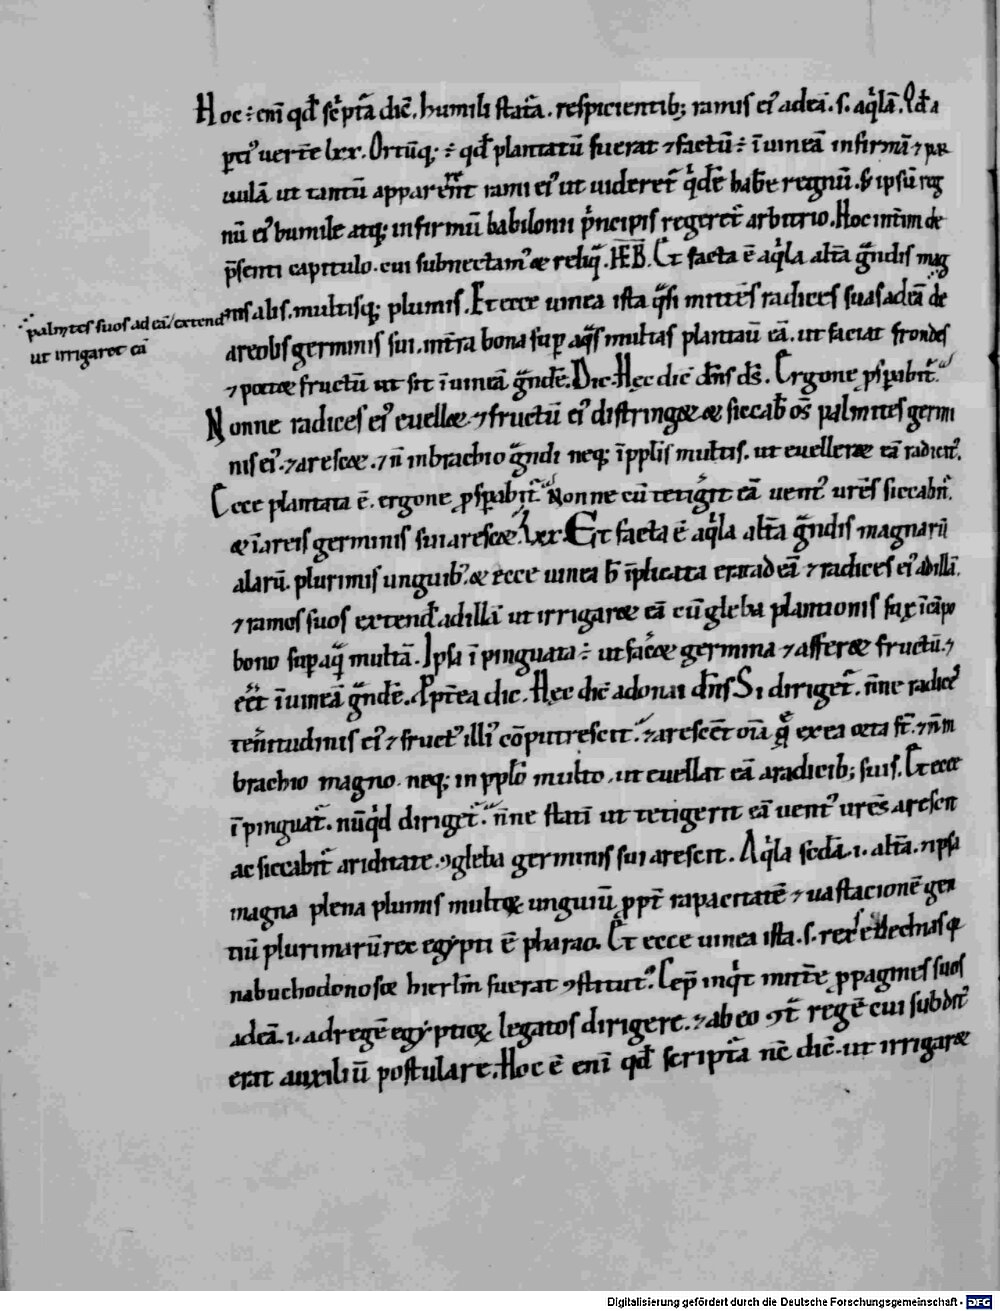 Hoc ÷ eni qđ sc̄ptā dic̄. humili statā. respicientib; ramis ei᾽ adeā. s. aq̇lā. Qđ a
pti᾽ uerte lxx. Ortūq; ÷ qđ plantatū fuerat ⁊ factū ÷ ī uineā infirmā ⁊ par
uulā ut tantū apparerent rami ei᾽ ut uideret̄ q̇dē habere regnū. & ipsū reg
nū ei᾽ humile atq; infirmū babilonii p̄ncipis regeret̄ arbitrio. Hoc int̄im de
p̄senti capitulo. cui subnectam᾽ & reliq̄. HEB̄. Et facta ē aq̇la altā g̃ndis mag
nis alis. multisq; plumis. Et ecce uinea ista q̄si mittēs radices suas adeā de
palmites suos ad eā extend
ut irrigaret eā
areolis germinis sui. int̄ra bona sup aq̄s multas plantaū eā. ut faciat frondes
⁊ portet fructū ut sit ī uineā g̃ndē. Dic. Hęc dic̄ dn̄s ds̄. Ergone psp̄abit̄.
Nonne radices ei᾽ euellet. ⁊ fructū ei᾽ distringet & siccab̄ os̄ palmites germi
nis ei᾽. ⁊ arescet. ⁊ n̄ inbrachio g̃ndi neq; ī pplis multis. ut euelleret eā radicit᾽.
Ecce plantata ē. ergone psp̄abit̄. Nonne cū tetiḡit eā uent᾽ urēs siccabit̄.
& ī areis germinis sui arescet. Lxx. Et facta ē aq̇la altā g̃ndis magnarū
alarū. plurimis unguib᾽. & ecce uinea h̄ īplicata erat ad eā ⁊ radices ei᾽ adillā.
⁊ ramos suos extend̄ adillā ut irrigaret eā cū gleba plantionis suę ī cāpo
bono sup aq̄ multā. Ipsa ī pinguata ÷ ut faceret germina ⁊ afferret fructū. ⁊
eēt ī uineā g̃ndē. Ppt̄ea dic. Hęc dic̄ adonai dn̄s Si diriget̄. n̄ne radic᾽
tenitudinis ei᾽ ⁊ fruct᾽ illi᾽ cōputrescit. ⁊ arescēt oīa q̄ ex ea orta st̄. ⁊ n̄ in
brachio magno. neq; in pplo multo. ut euellat eā aradicib; suis. Et ecce
ī pinguat̄. nūq̇d diriget̄. n̄ne statī ut tetigerit eā uent᾽ urēs arescit
ac siccabit̄ ariditate. ꝯ gleba germinis sui arescit. Aq̇la sedā. i. altā. ⁊ ipsa
magna plena plumis multoꝝ unguiū ppt̄ rapacitatē ⁊ uastacionē gen
tiū plurimarū rex egypti ē pharao. Et ecce uinea ista. s. rex sedechias q̄
nabuchodonosor hierlm̄ fuerat ꝯstitut᾽. Cep inq̇t mittere ppagines suos
adeā. i. ad regē egyptioꝝ legatos dirigere. ⁊ ab eo ꝯt̄ regē cui subdit᾽
erat auxiliū postulare. Hoc ē eni qđ scriptā nc̄ dic̄. ut irrigaret